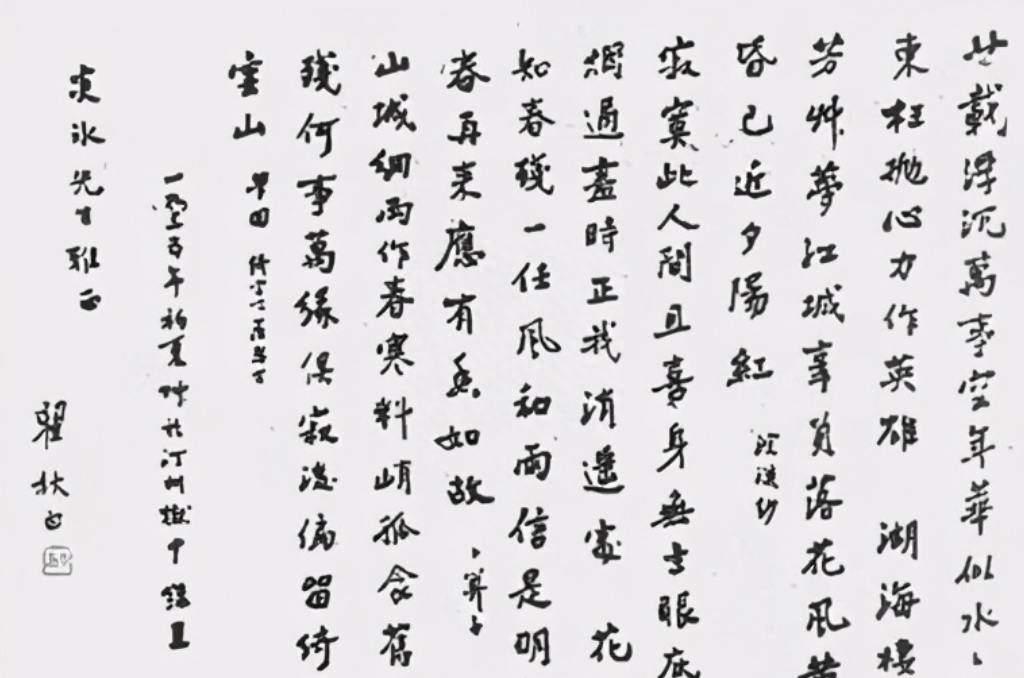 廿載浮沉萬事空年華似水、
東枉拋心力作英雄 湖海棲
芳艸夢江城辜負落花風黃
昏已近夕陽紅 浣溪紗
寂寞此人間且喜身無主眼底
烟過盡時正我消遙處 花
知春殘一任風和雨信是明
春再來應有香如故 卜算子
山城細雨作春寒料峭孤衾舊
殘何事萬緣俱寂後偏留綺
雲山
年初夏作於汀州獄中 錄呈
炎冰先生雅正
瞿秋白